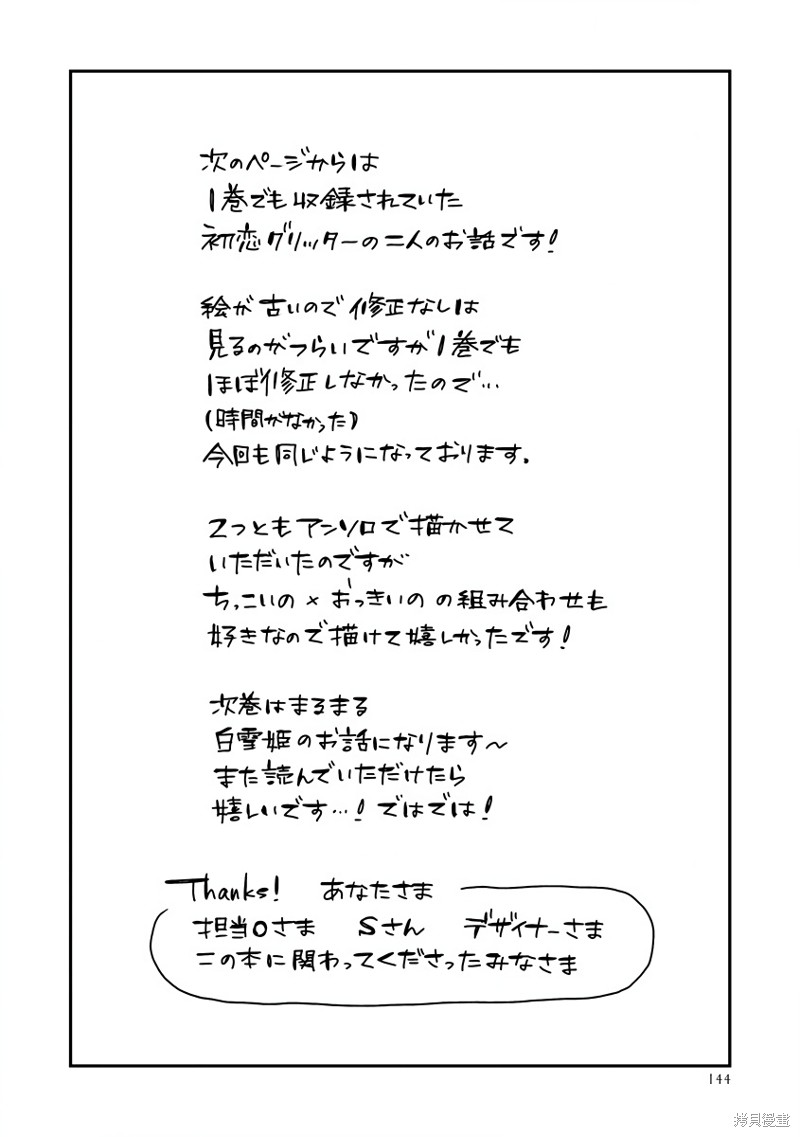 次のページからは
1巻でも収録されていた
初恋グリッターの二人のお話です!
絵が古いので修正なしは
見るのがつらいですが1巻でも
ほぼ修正しなかったので…
(時間がなかった)
今回も同じようになっております.
2つともアンソロで描かせて
いただいたのですが
ちっこいの×おっきいの の組み合わせも
好きなので描けて嬉しかったです!
次巻はまるまる
白雪姫のお話になります〜
また読んでいただけたら
嬉しいです…! ではでは!
Thanks! あなたさま
担当Oさま Sさん デザイナーさま
この本に関わってくださったみなさま
144
拷貝漫畫